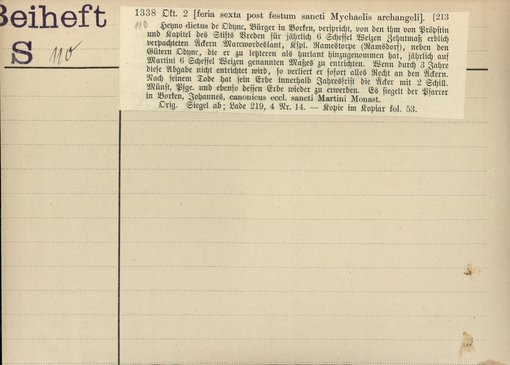 Beiheft
S 110
1338 Okt. 2 [feria sexta post festum sancti Mychaelis archangeli]. [213
110 Heyno dictus de Odync, Bürger in Borken, verspricht, von den ihm von Pröpstin
und Kapitel des Stifts Vreden für jährlich 6 Scheffel Weizen Zehntmaß erblich
verpachteten Äckern Marcwordeslant, Kspl. Ramestorpe (Ramsdorf), neben den
Gütern Odync, die er zu letzteren als hurlant hinzugenommen hat, jährlich auf
Martini 6 Scheffel Weizen genannten Maßes zu entrichten. Wenn durch 3 Jahre
diese Abgabe nicht entrichtet wird, so verliert er sofort alles Recht an den Äckern.
Nach seinem Tode hat sein Erbe innerhalb Jahresfrist die Äcker mit 2 Schill.
Münst. Pfge. und ebenso dessen Erbe wieder zu erwerben. Es siegelt der Pfarrer
in Borken, Johannes, canonicus eccl. sancti Martini Monast.
Orig. Siegel ab; Lade 219, 4 Nr. 14. — Kopie im Kopiar fol. 53.